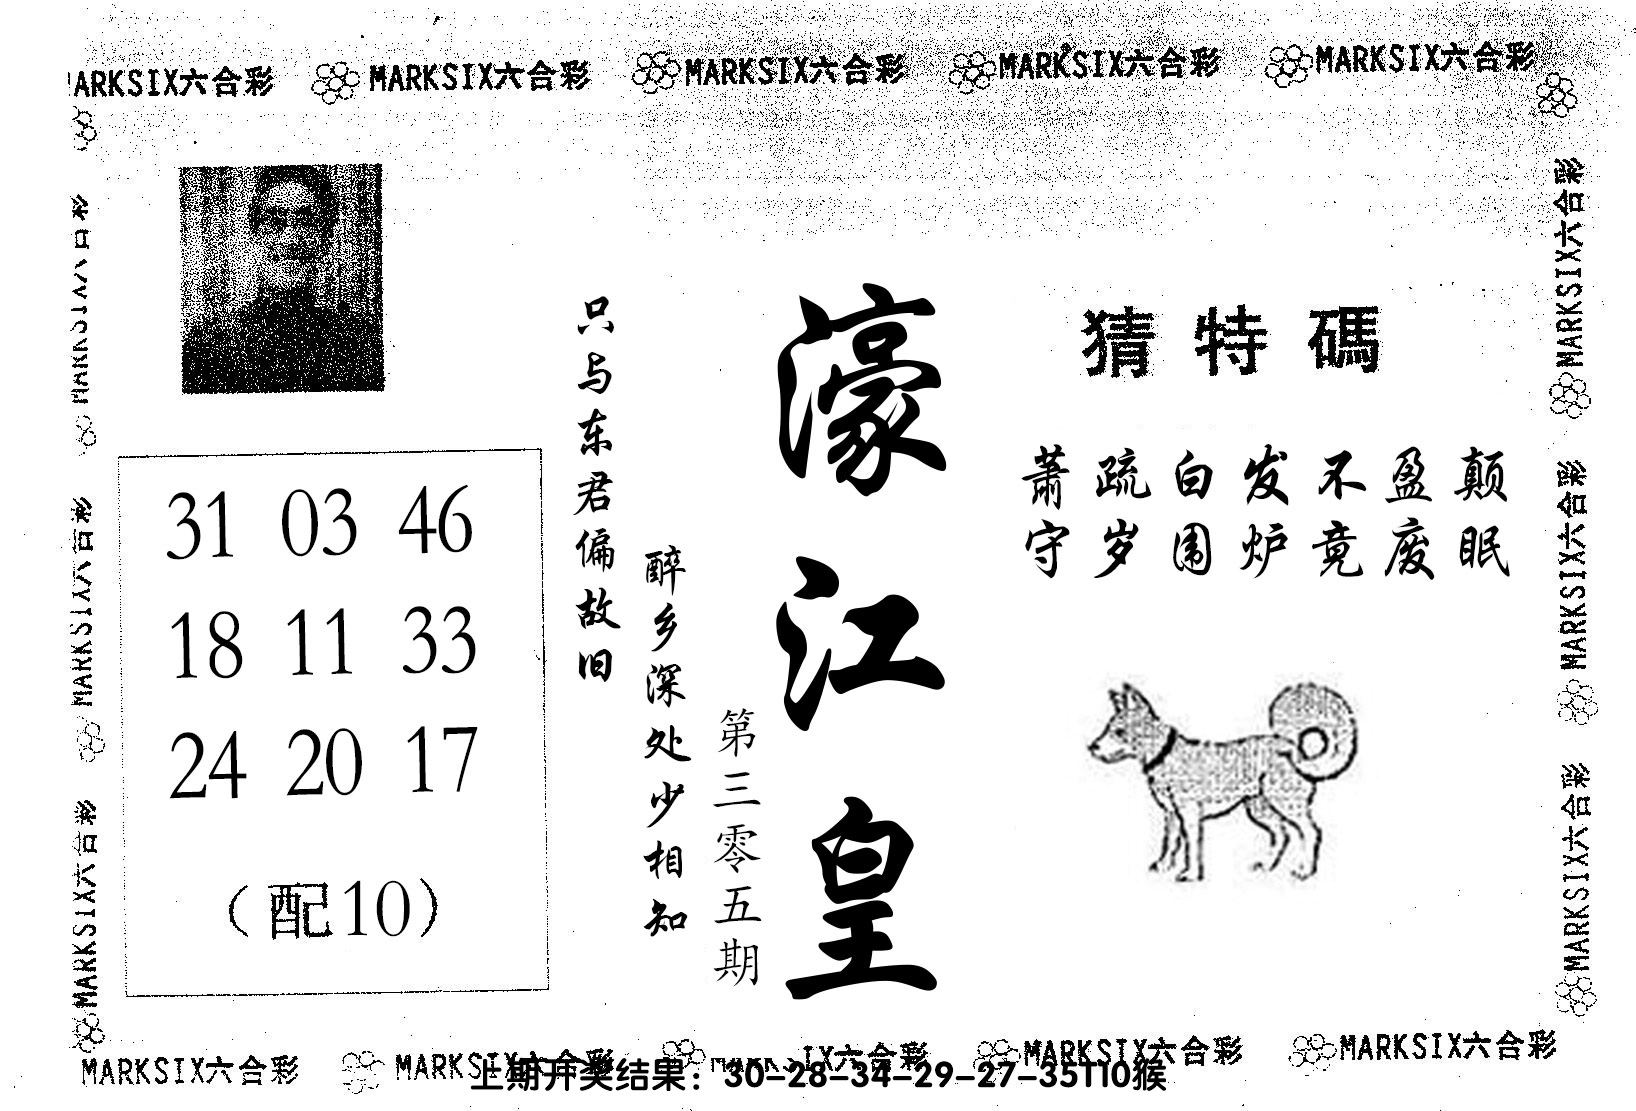 MARKSIX六合彩 MARKSIX六合彩 MARKSIX六合彩 MARKSIX六合彩 MARKSIX六合彩
猜特碼
萧疏白发不盈颠
守岁围炉竟废眠
濠江皇
第三零五期
只与东君偏故旧
醉乡深处少相知
31 03 46
18 11 33
24 20 17
（配10）
MARKSIX六合彩
MARKSIX六合彩
MARKSIX六合彩
MARKSIX六合彩
MARKSIX六合彩
MARKSIX六合彩
MARKSIX六合彩 MARKSIX六合彩 MARKSIX六合彩 MARKSIX六合彩 MARKSIX六合彩
上期开奖结果：30-28-34-29-27-35T10猴